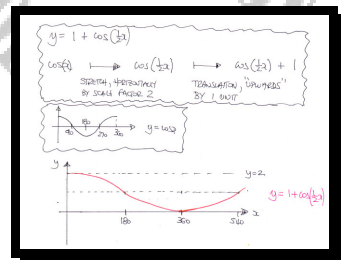 y = 1 + cos(½x)
cos(x) ⟼ cos(½x) ⟼ cos(½x) + 1
STRETCH, HORIZONTALLY
BY SCALE FACTOR 2
TRANSLATION, "UPWARDS"
BY 1 UNIT
90 180 270 360 y = cosx
y
y=2
y = 1 + cos(½x)
180 360 540 x